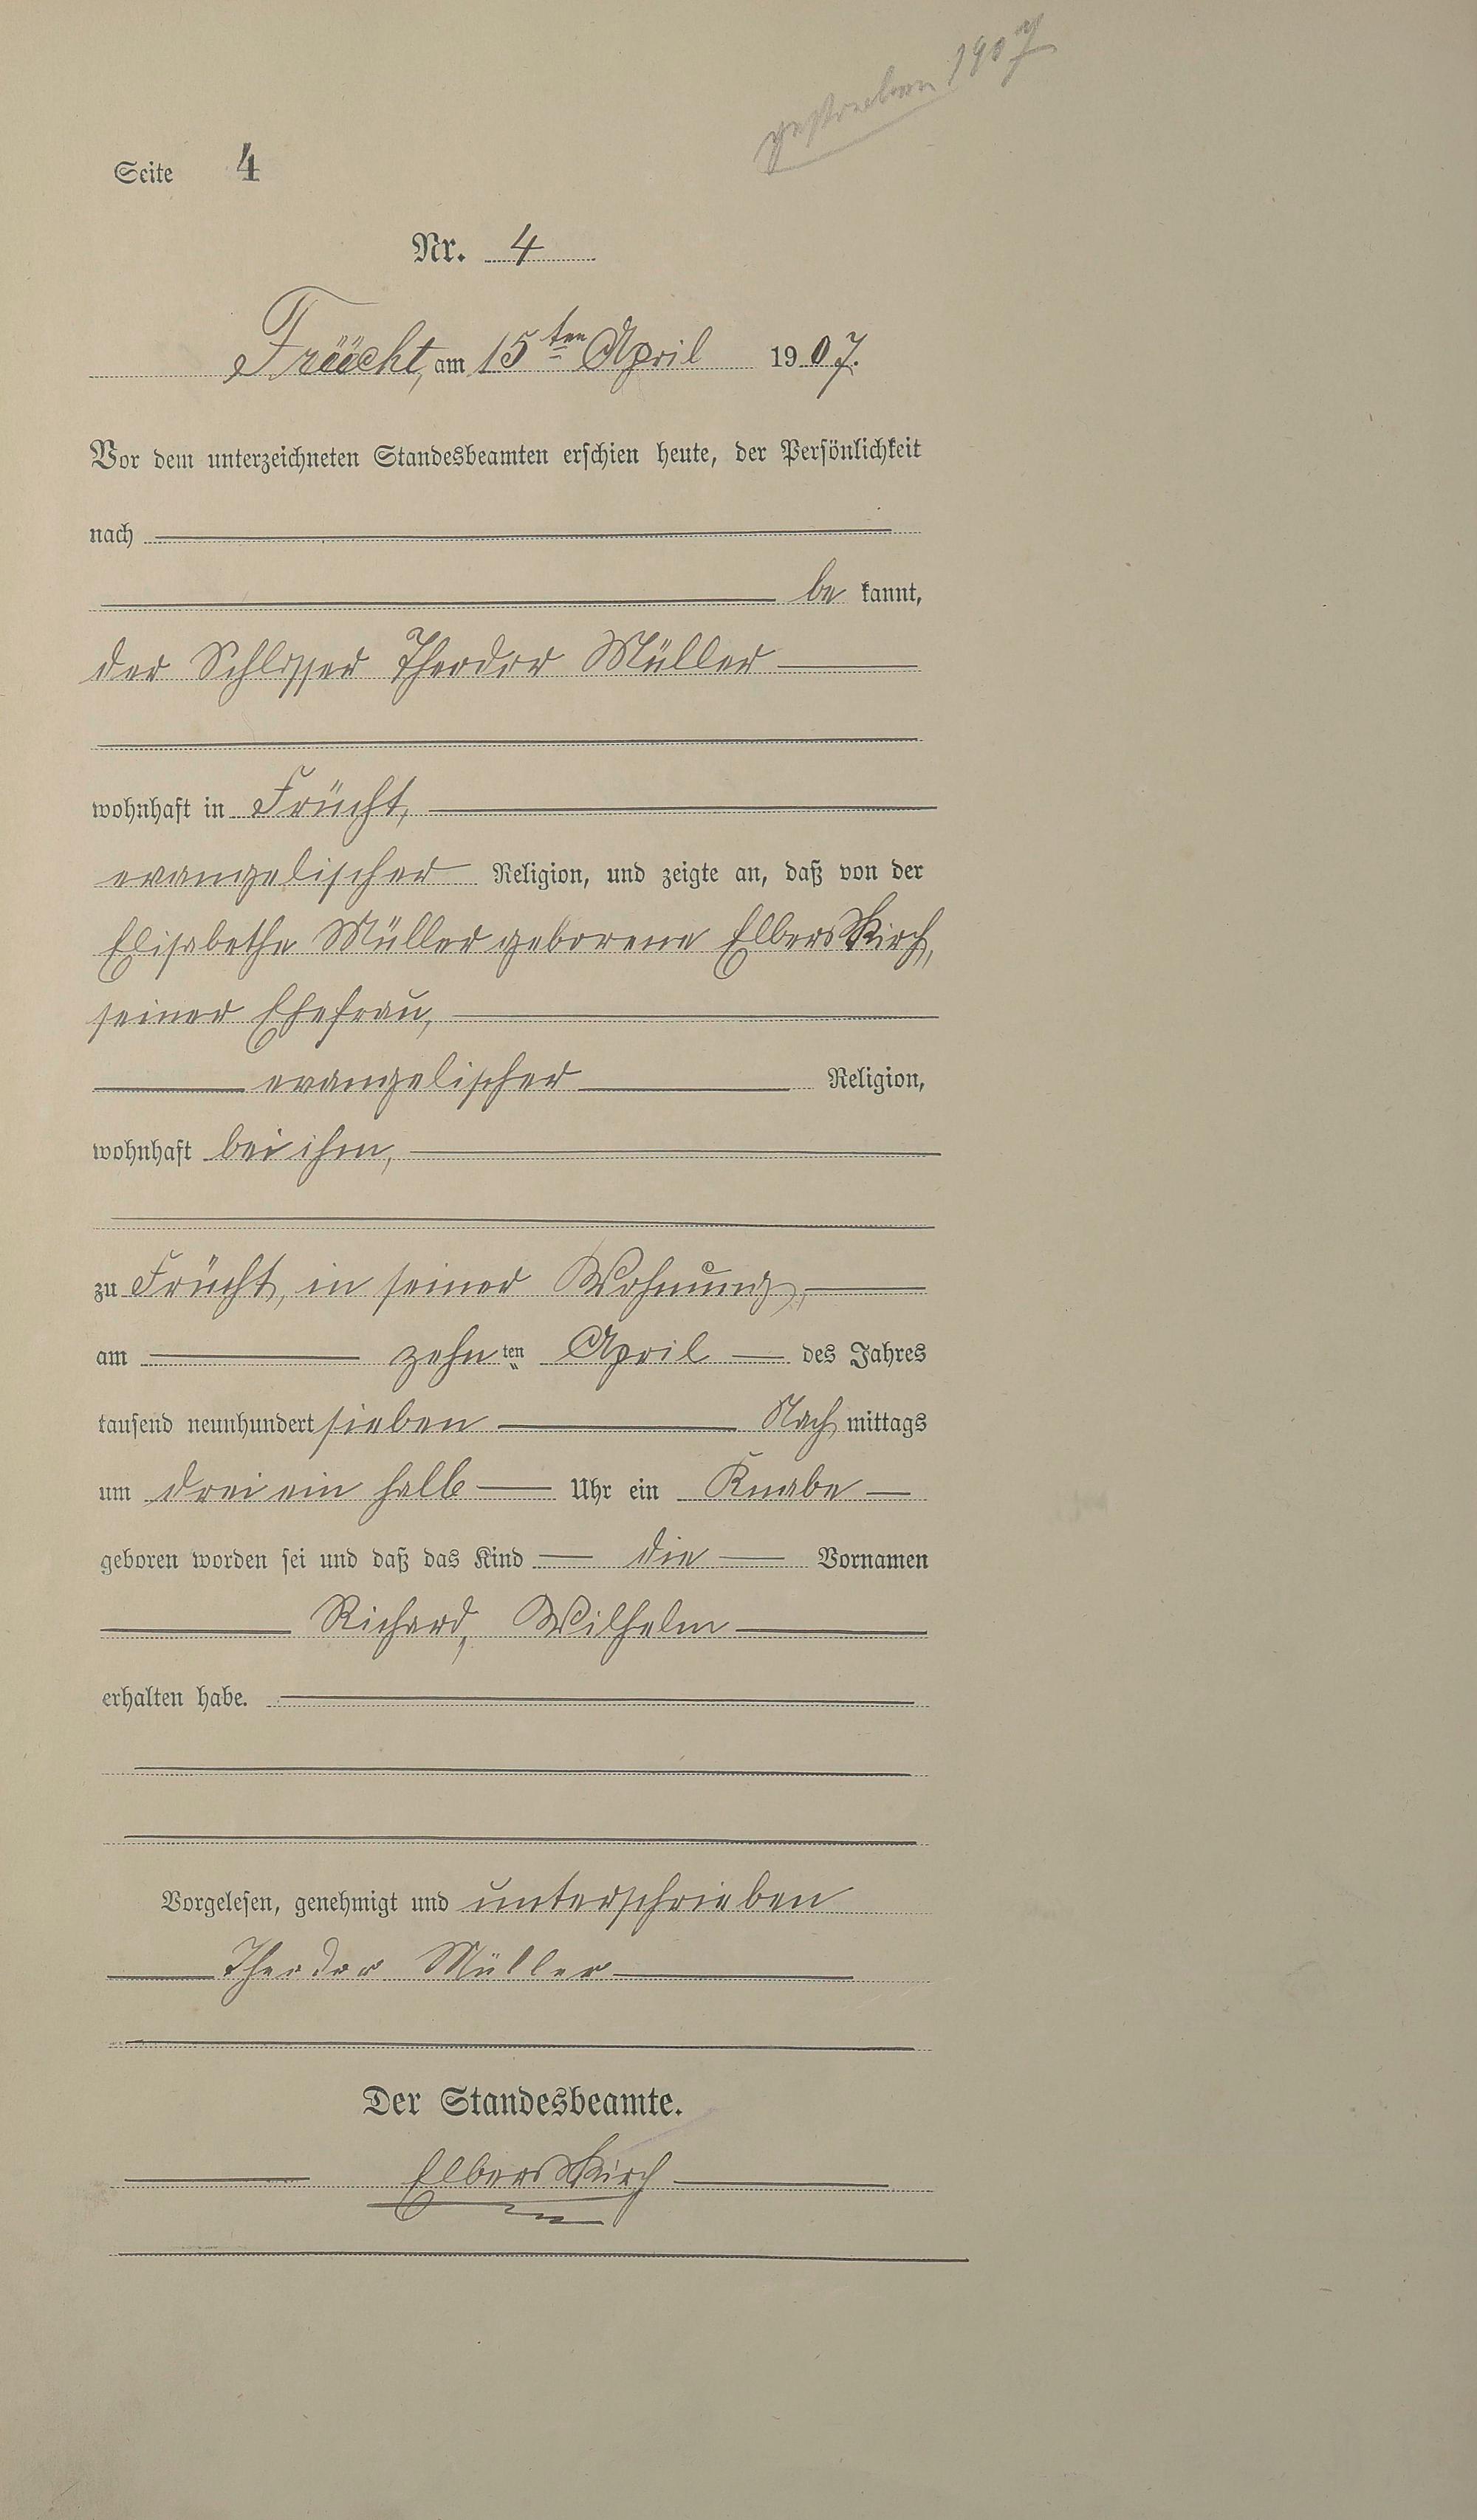 gestorben 1907
Seite 4
Nr. 4
Früücht, am 15ten April 1907.
Vor dem unterzeichneten Standesbeamten erschien heute, der Persönlichkeit
nach
be kannt,
der Schlosser Theodor Müller
wohnhaft in Frücht,
evangelischer Religion, und zeigte an, daß von der
Elisabethe Müller geborene Elberskirch,
seiner Ehefrau,
evangelischer Religion,
wohnhaft bei ihm,
zu Frücht, in seiner Wohnung,
am zehn ten April des Jahres
tausend neunhundert sieben Nach mittags
um drei ein halb Uhr ein Knabe
geboren worden sei und daß das Kind die Vornamen
Richard, Wilhelm
erhalten habe.
Vorgelesen, genehmigt und unterschrieben
Theodor Müller
Der Standesbeamte.
Elberskirch